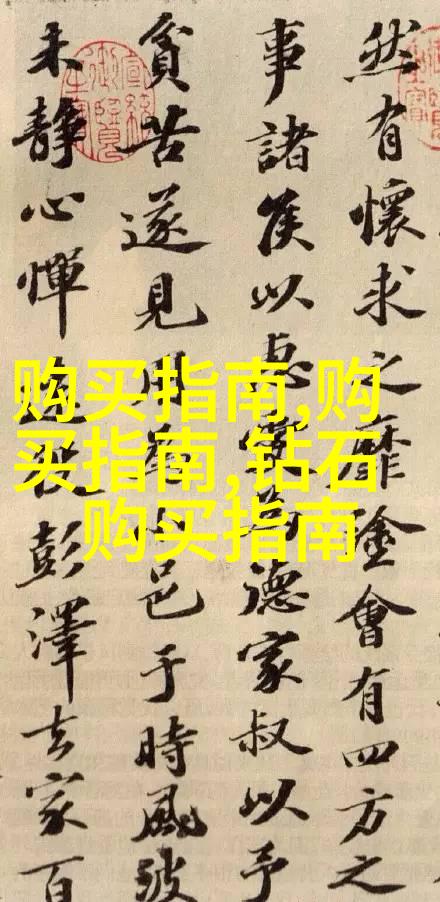 然有懷求之靡塗會有四方之
事諸侯以惠愛為德家叔以予
貧苦遂見用小邑于時風波
未靜心憚遠役彭澤去家百
购买指南,购
买指南,钻石
购买指南